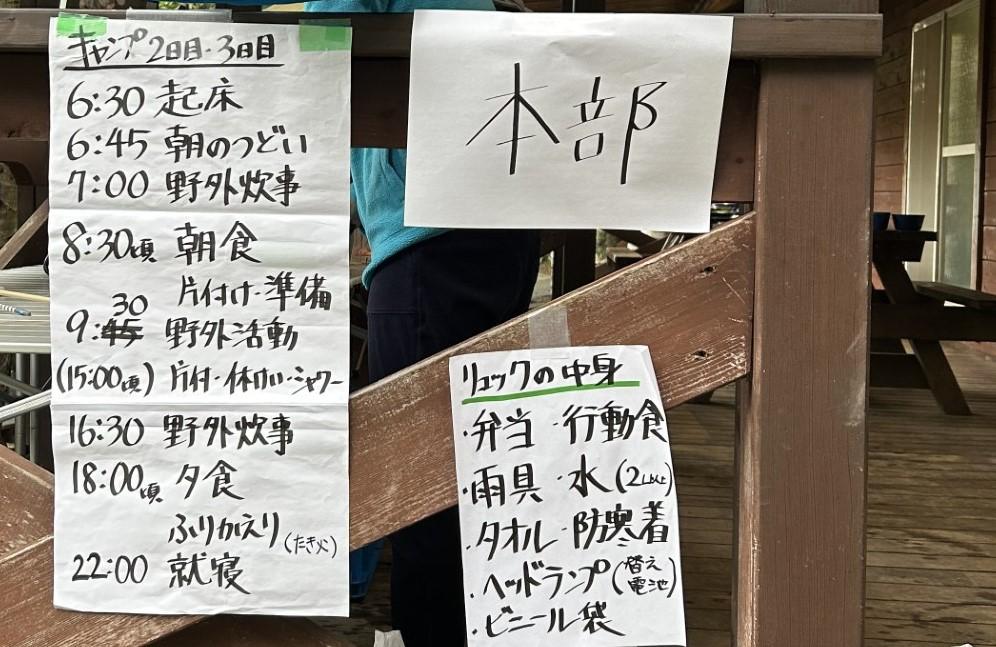 キャンプ2日目・3日目
6:30 起床
6:45 朝のつどい
7:00 野外炊事
8:30頃 朝食
片付け・準備
9:30 野外活動
(15:00頃) 片付・休けい・シャワー
16:30 野外炊事
18:00頃 夕食
ふりかえり(たき火)
22:00 就寝
本部
リュックの中身
・弁当 ・行動食
・雨具 ・水(2L以上)
・タオル ・防寒着
・ヘッドランプ(替え電池)
・ビニール袋